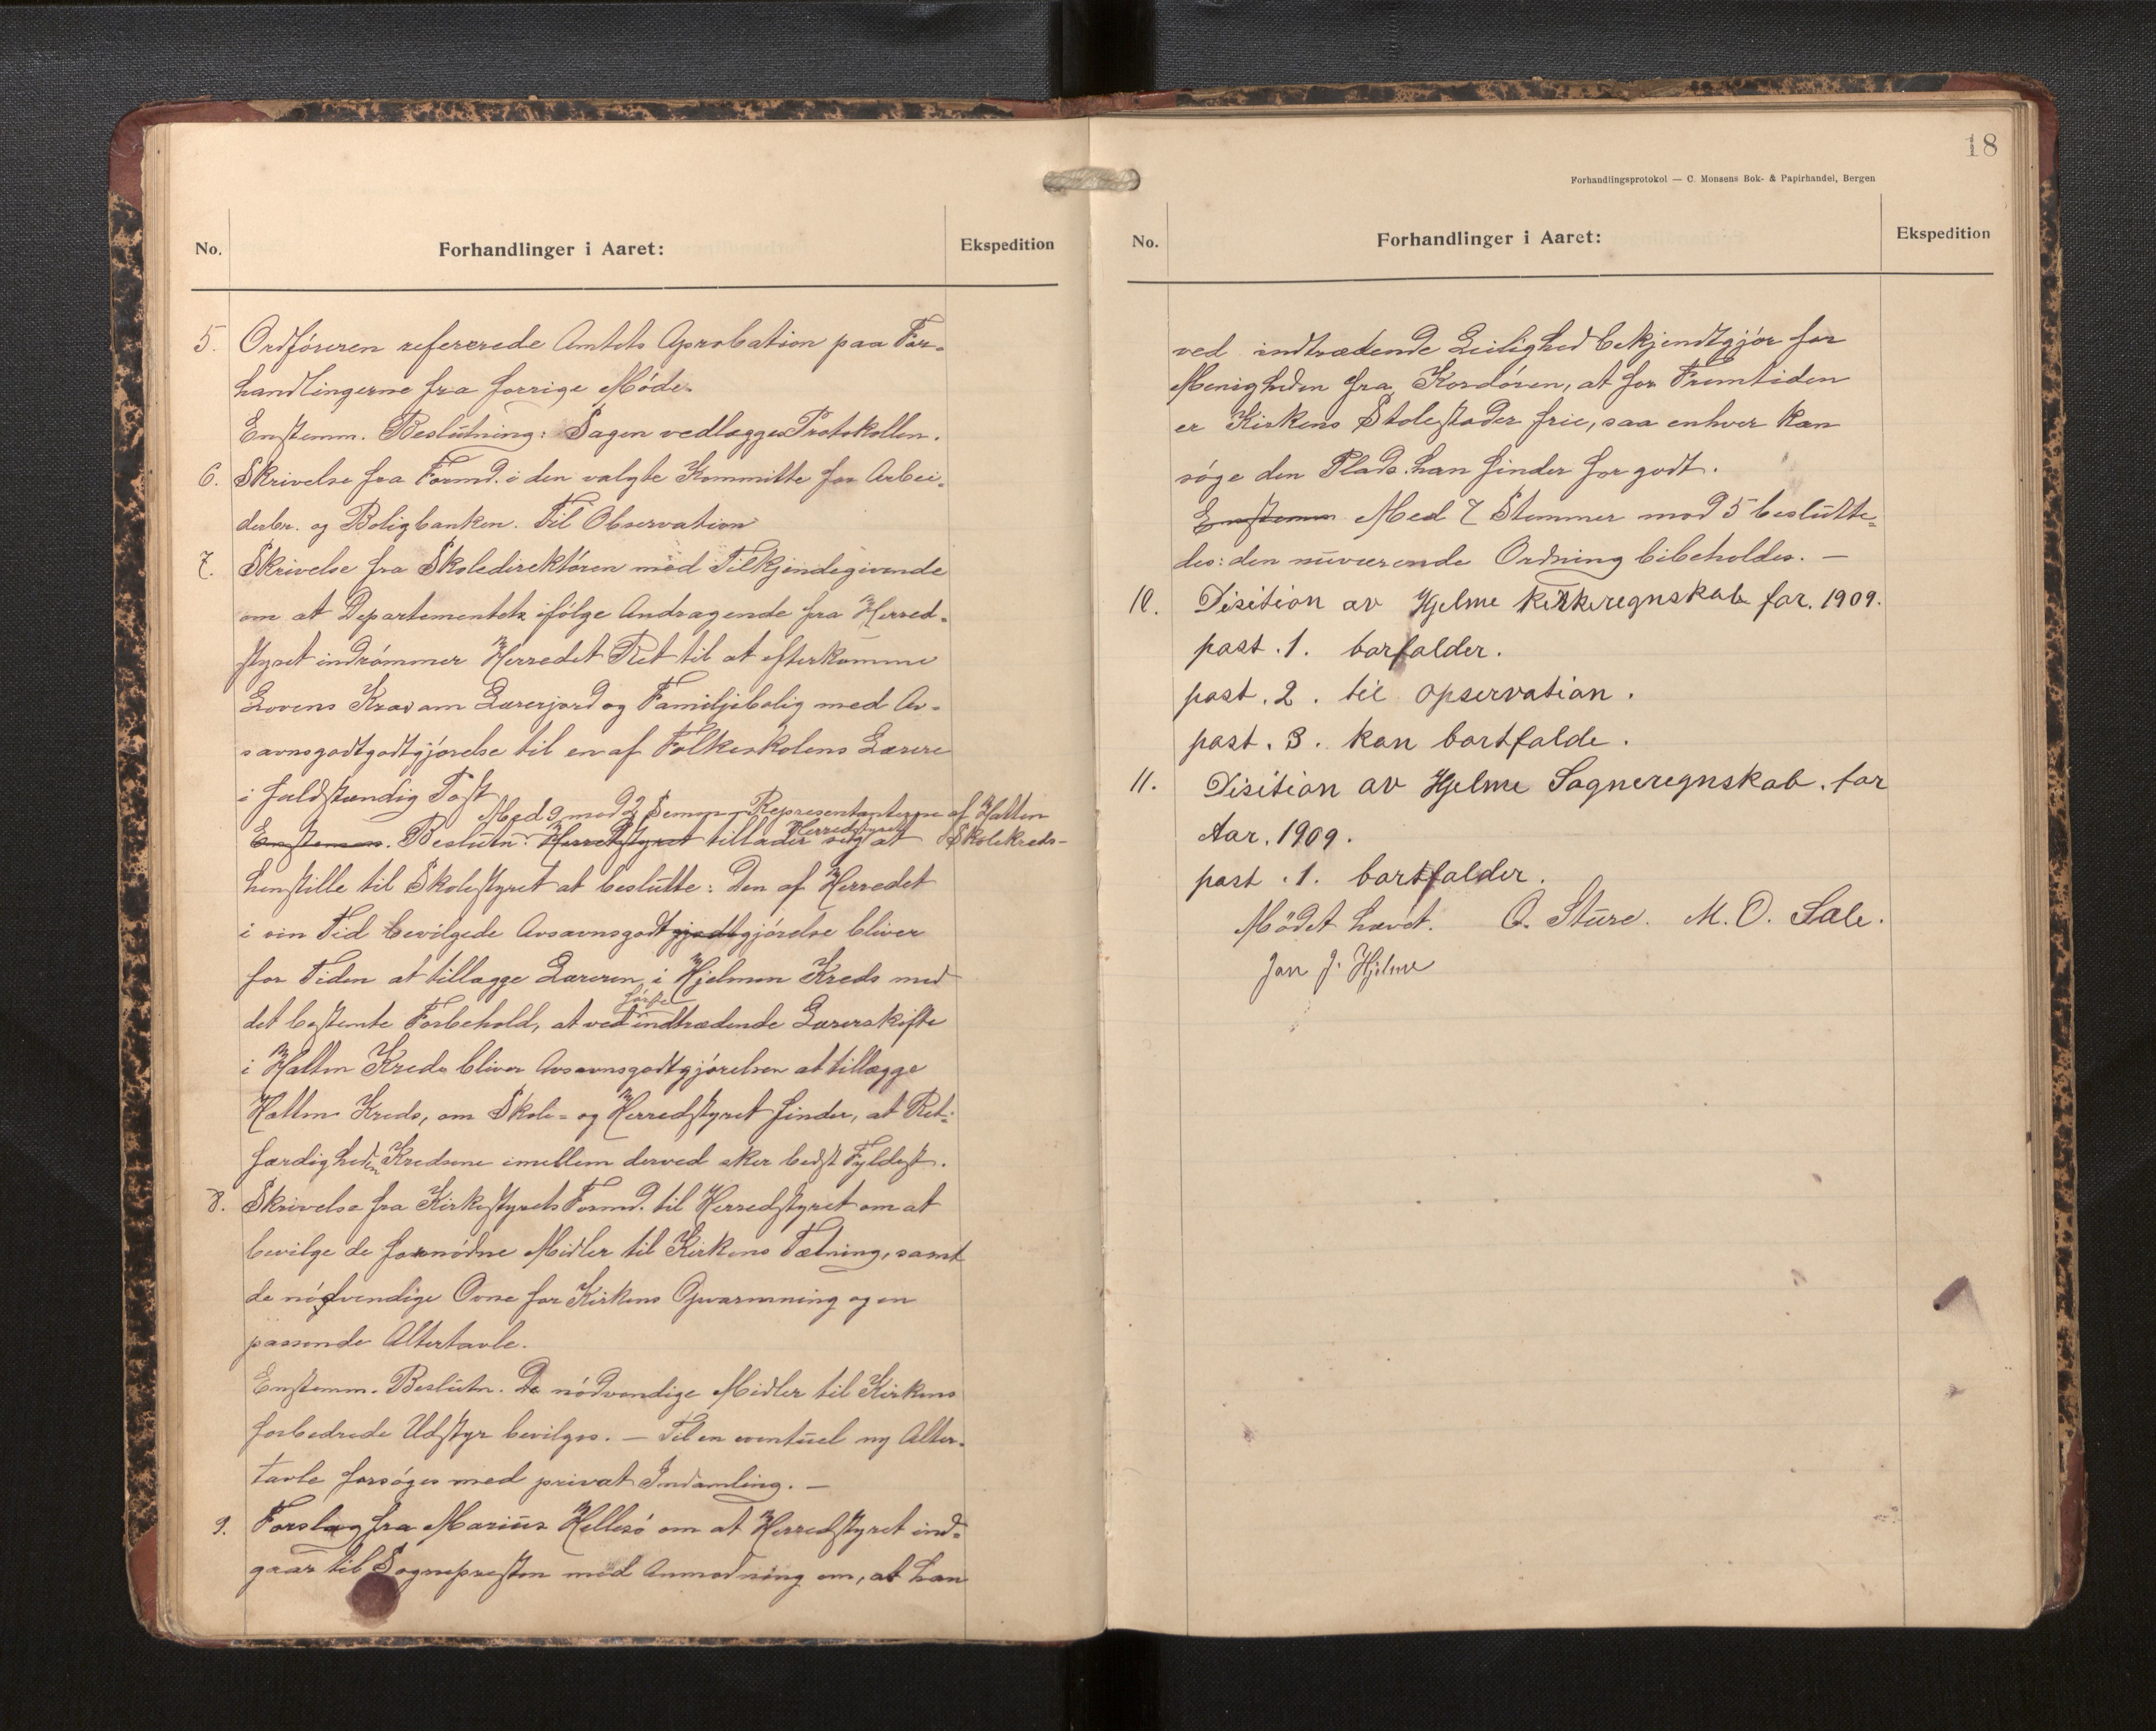 No.
Forhandlinger i Aaret:
Ekspedition
5. Ordføreren refererede Amtets Aprobation paa For-
handlingerne fra forrige Møde.
Enstemm. Beslutning: Sagen vedlægges Protokollen.
6. Skrivelse fra Formd. i den valgte Kommitte for Arbei-
derbr. og Boligbanken. Til Observation
7. Skrivelse fra Skoledirektøren med Tilkjendegivende
om at Departementet ifølge Andragende fra Herred-
styret indrømmer Herredet Ret til at efterkomme
Lovens Krav om Lærerjord og Familjebolig med Av-
savnsgodtgodtgjørelse til en af Folkeskolens Lærere
i fuldstændig Post
Med 9 mod 2 Semm. Repræsentanterne af Hatten
Enstemm. Beslutn: Herredstyret tillader Herredstyret sig at Skolekreds-
henstille til Skolestyret at beslutte: Den af Herredet
i sin Tid bevilgede Avsavnsgodtgjodtgjørelse bliver
for Tiden at tillægge Læreren i Hjelmen Kreds med
det bestemte Forbehold, at ved første indtrædende Lærerskifte
i Halten Kreds bliver Avsavnsgodtgjørelsen at tillægge
Hatten Kreds, om Skole- og Herredstyret finder, at Ret-
færdigheden Kredsene imellem derved sker bedst Fyldest.
8. Skrivelse fra Kirkestyrets Formd. til Herredstyret om at
bevilge de fornødne Midler til Kirkens Tætning, samt
de nødvendige Ovne for Kirkens Opvarmning og en
passende Altertavle.
Enstemm. Beslutn. De nødvendige Midler til Kirkens
forbedrede Udstyr bevilges. — Til en eventuel ny Alter-
tavle forsøges med privat Indsamling. —
9. Forslag fra Marius Hellesø om at Herredstyret ind-
gaar til Sognepresten med Anmodning om, at han
18
Forhandlingsprotokol — C. Monsens Bok- & Papirhandel, Bergen
No.
Forhandlinger i Aaret:
Ekspedition
ved indtrædende Leilighed bekjendtgjør for
Menigheden fra Kordøren, at for Fremtiden
er Kirkens Stolestader frie, saa enhver kan
søge den Plads han finder for godt.
Enstemm Med 7 Stemmer mod 5 beslutte-
des: den nuværende Ordning bibeholdes. —
10. Disition av Hjelme kirkeregnskab for. 1909.
post. 1. borfalder.
post. 2. til opservation.
post. 3. kan bortfalde.
11. Disition av Hjelme Sogneregnskab. for
Aar. 1909.
post. 1. bortfalder.
Mødet hævet. O. Sture. M. O. Sæle.
Jon J. Hjelme